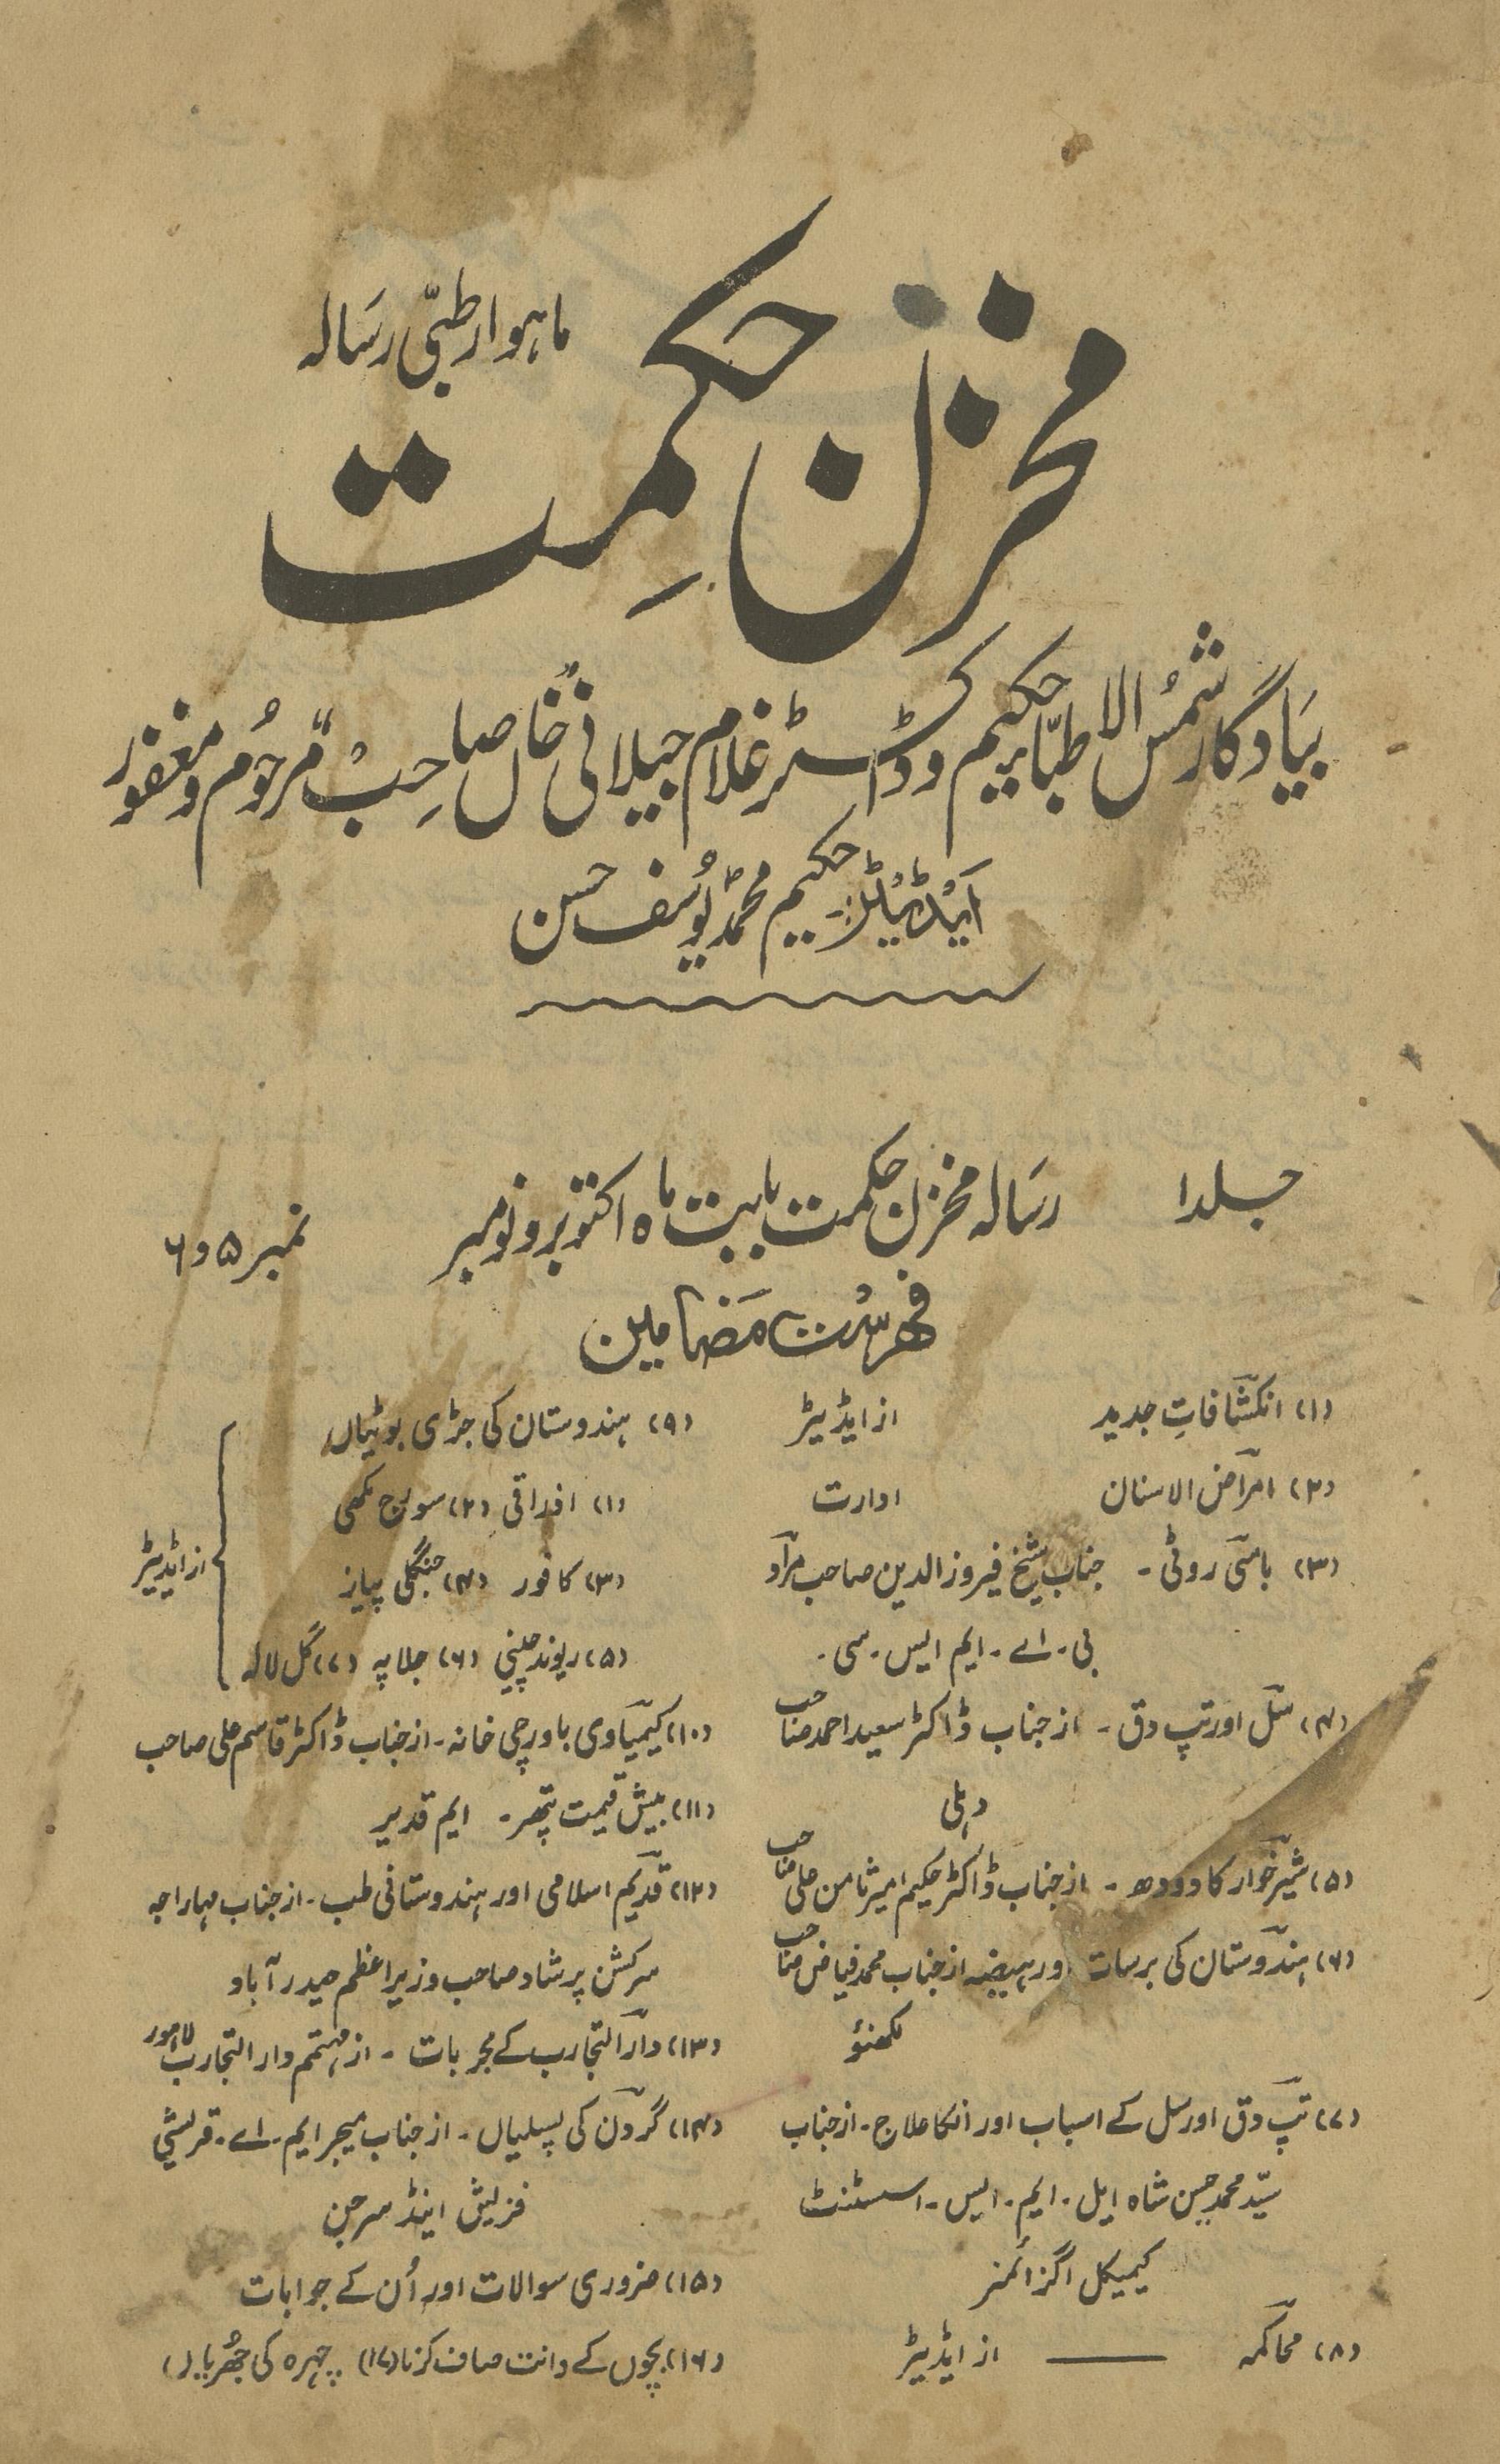 ماہوار طبّی رسالہ
مخزن حکمت
بیادگار شمس الاطبّا حکیم و ڈاکٹر غلام جیلانی خاں صاحب مرحوم و مغفور
ایڈیٹر:۔ حکیم محمد یوسف حسن
جلد ۱ رسالہ مخزن حکمت بابت ماہ اکتوبر و نومبر نمبر ۵ و ۶
فہرست مضامین
(۱) انکشافاتِ جدید از ایڈیٹر
(۲) امراض الاسنان ادارت
(۳) باسی روٹی - جناب شیخ فیروز الدین صاحب مراد
بی - اے - ایم ایس - سی -
(۴) سل اور تپ دق - از جناب ڈاکٹر سعید احمد صاحب
دہلی
(۵) شیر خوار کا دودھ - از جناب ڈاکٹر حکیم امیر ثامن علی صاحب
(۶) ہندوستان کی برسات اور ہیضہ از جناب محمد فیاض صاحب
لکھنؤ
(۷) تپ دق اور سل کے اسباب اور انکا علاج - از جناب
سیّد محمد حسن شاہ ایل - ایم - ایس - اسسٹنٹ
کیمیکل اگزائمنر
(۸) محاکمہ ——— از ایڈیٹر
(۹) ہندوستان کی جڑی بوٹیاں
(۱) افراقی (۲) سورج مکھی
(۳) کافور (۴) جنگلی پیاز
(۵) ریوند چینی (۶) جلاپہ (۷) گل لالہ
از ایڈیٹر
(۱۰) کیمیاوی باورچی خانہ - از جناب ڈاکٹر قاسم علی صاحب
(۱۱) بیش قیمت پتھر - ایم قدیر
(۱۲) قدیم اسلامی اور ہندوستانی طب - از جناب مہاراجہ
سرکشن پرشاد صاحب وزیر اعظم حیدر آباد
(۱۳) دار التجارب کے مجربات - از مہتمم دار التجارب لاہور
(۱۴) گردن کی پسلیاں - از جناب میجر ایم - اے - قریشی
فزیشن اینڈ سرجن
(۱۵) ضروری سوالات اور اُن کے جوابات
(۱۶) بچوں کے دانت صاف کرنا (۱۷) چہرہ کی جھُریاں